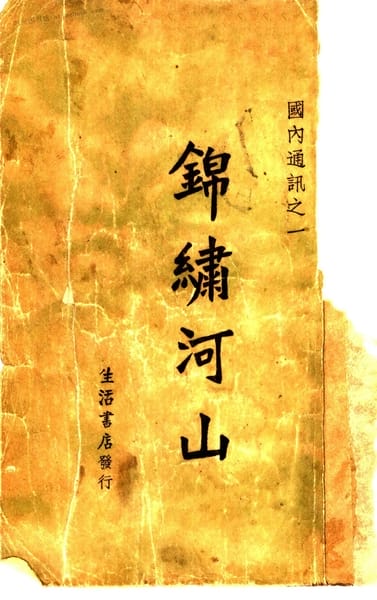 國內通訊之一
錦繡河山
生活書店發行